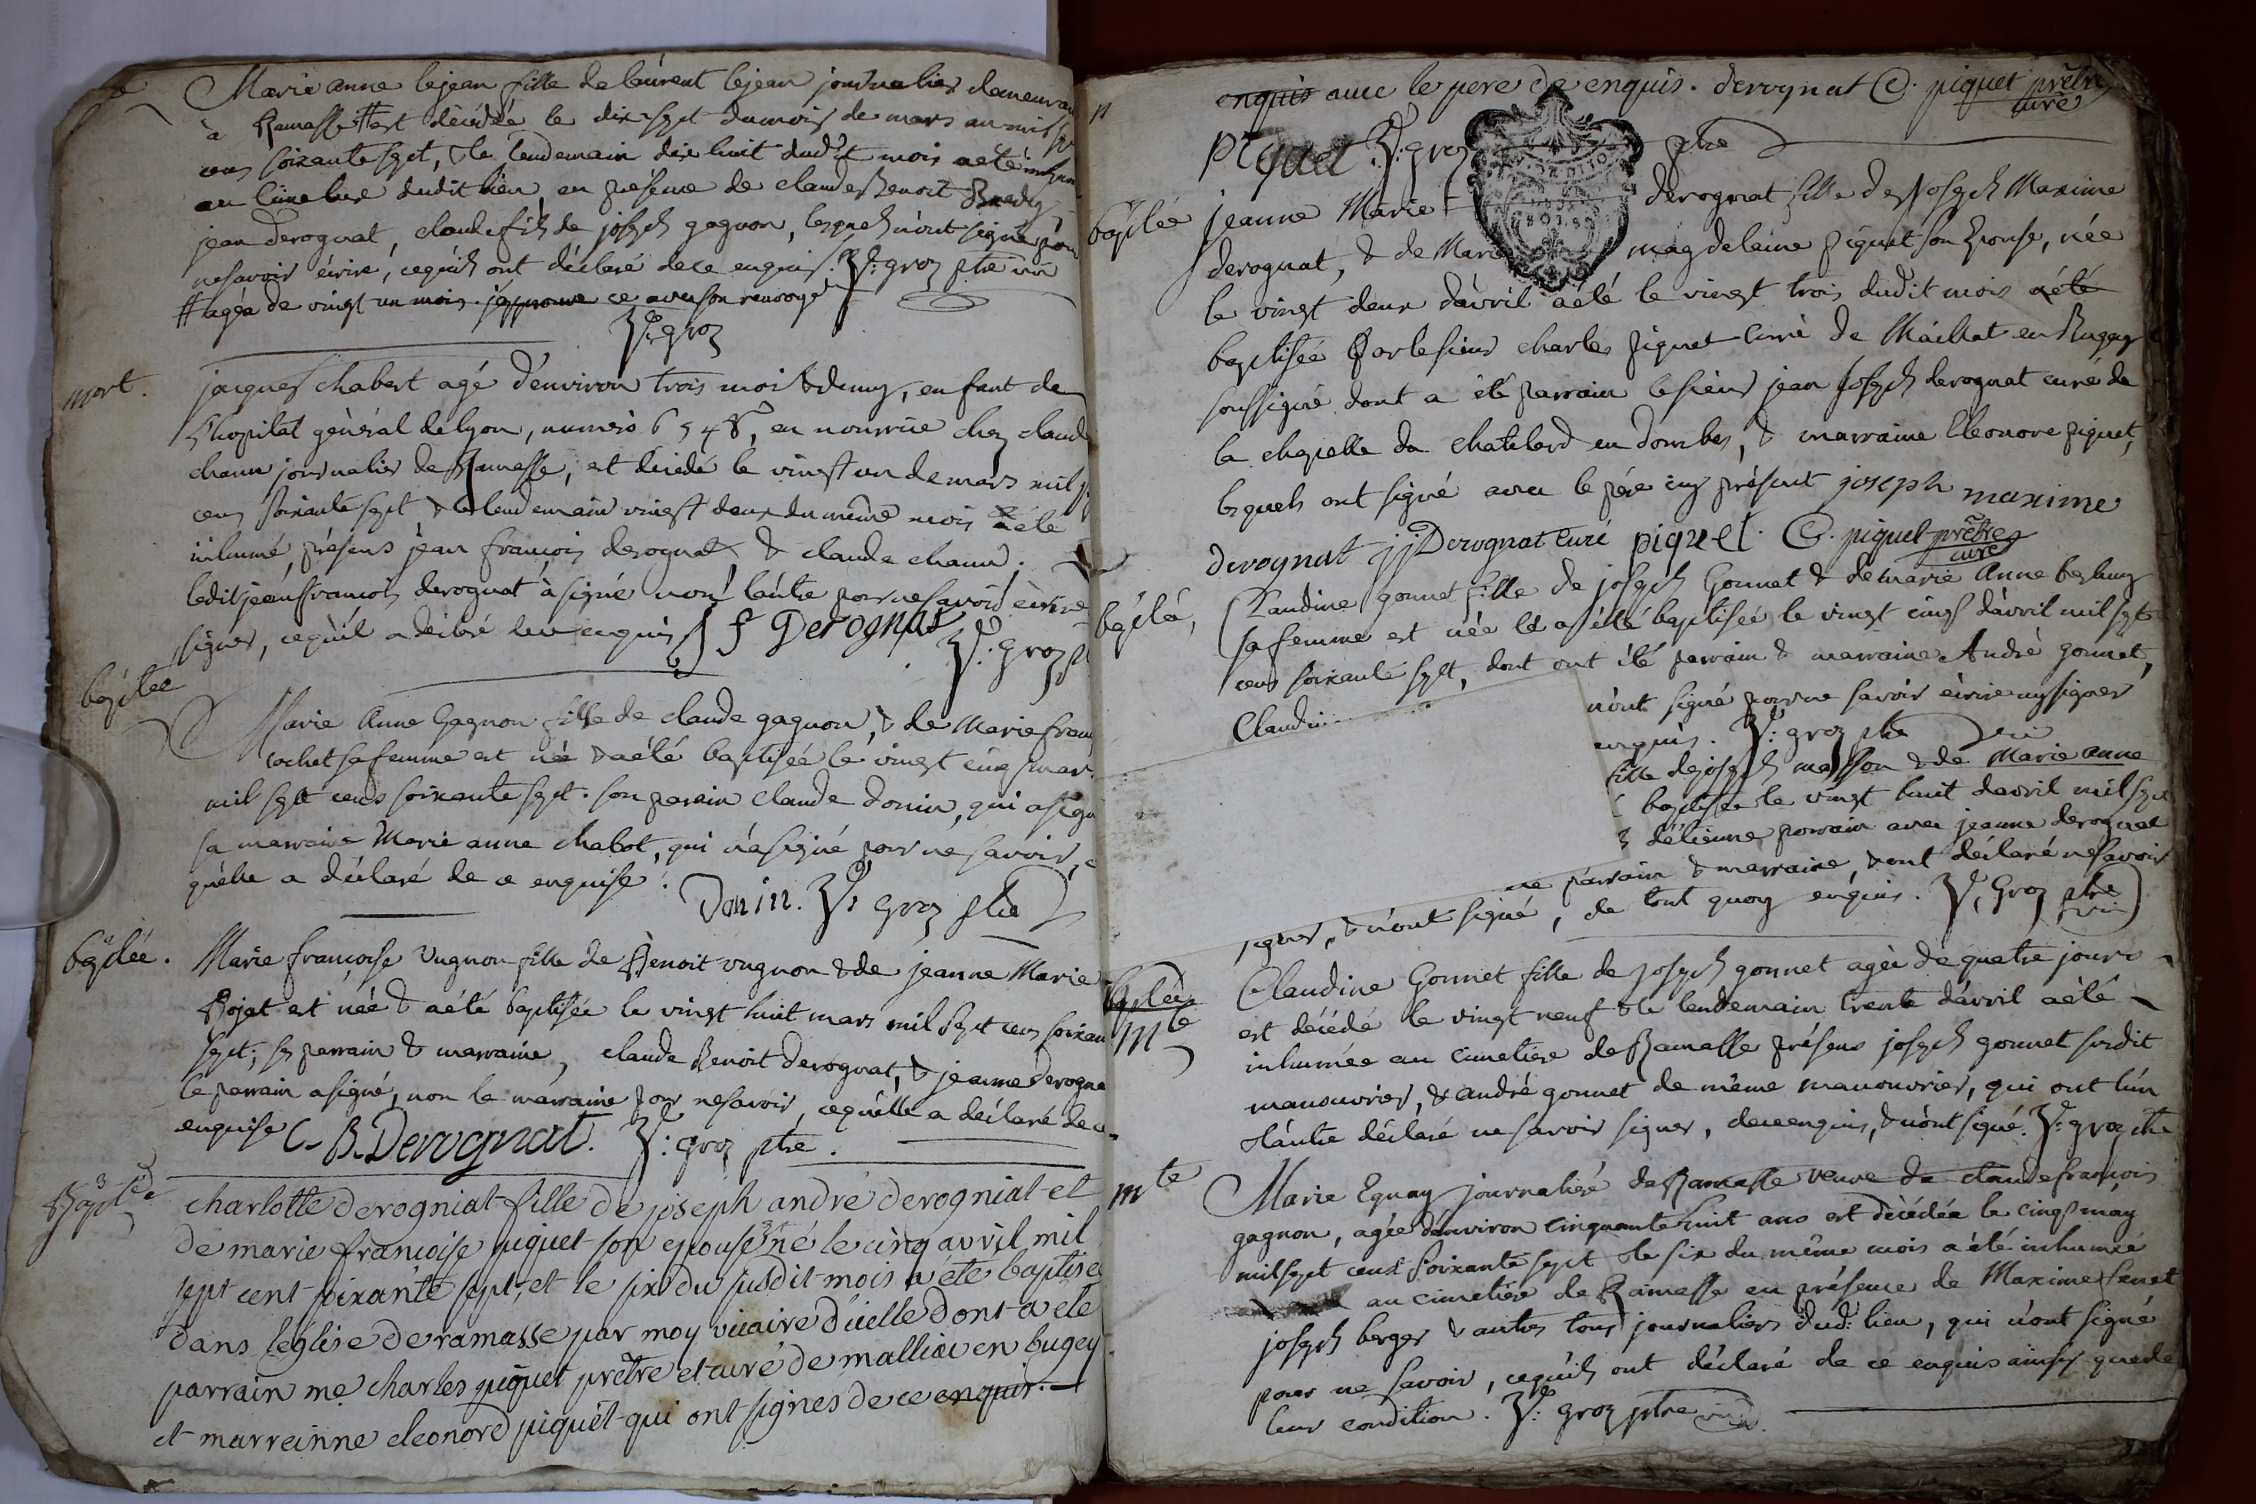 Marie anne lejean fille de laurent lejean journalier demeurant
à Ramasse # est décédée le dix sept du mois de mars an mil sept
cens soixante sept, & le lendemain dix huit dud't mois a été inhumée
au cimetiere dudit lieu en présence de claude Benoit
jean derognat, claude fils de joseph gagnon, lesquels n'ont signé pour
ne savoir écrire, ce qu'ils ont déclaré de ce enquis. groz ptre vic
# agéa de vingt un mois. j'approuve ce avec son renvoye
groz
mort.
jacques chabert agé d'environ trois mois & demy, enfant de
l'hopital général de lyon, numero 6548, en nourrice chez claude
chanu journalier de Ramasse, est décédé le vingt un de mars mil sept
cens soixante sept & le lendemain vingt deux du même mois a été
inhumé, présens jean françois derognat, & claude chanu.
ledit jean françois derognat à signé non l'autre pour ne savoir écrire
signer, ce qu'il a déclaré de ce enquis J f Derognat
groz
baptee
Marie Anne Gagnon fille de claude gagnon, & de Marie fran
cochet sa femme est née & a été baptisée le vingt cinq mars
mil sept cens soixante sept. son parain claude donin, qui a signé
sa marraine Marie anne chabot, qui n'a signé pour ne savoir, ce
qu'elle a déclaré de ce enquise. Donin. groz ptre
baptée.
Marie françoise vugnon fille de Benoit vugnon & de jeanne Marie
Bojat est née & a été baptisée le vingt huit mars mil sept cens soixante
sept; ses parrain & marraine, claude Benoit derognat, & jeanne derognat
le parrain a signé, non la marraine pour ne savoir, ce qu'elle a déclaré de ce
enquise C. B. Derognat. groz ptre.
Baptée
charlotte derogniat fille de joseph andré derogniat et
de marie francoise piquet son epouse né le cinq avril mil
sept cent soixante sept, et le six du susdit mois a été baptise
dans l'église de ramasse par moy vicaire d'icelle dont a été
parrain me charles piquet prêtre et curé de malliac en bugey
et marreinne eleonord piquet qui ont signés de ce enquir.
enquis avec le pere de enquis. derognat C. piquet prêtre
curé
piquet groz ptre
baptée jeanne Marie derognat fille de Joseph Maxime
derognat, & de Marie magdeleine piquet son Epouse, née
le vingt deux d'avril a été le vingt trois dudit mois a été
baptisée par le sieur charles piquet curé de Maillat en Bugey
soussigné dont a été parrain le sieur jean joseph derognat curé de
la chapelle du chatelard en dombes, & marraine Eleonore piquet,
lesquels ont signé avec le père icy présent joseph maxime
derognat jj Derognat curé piquet. C. piquet prêtre
curé
baptée,
Claudine gonnet fille de joseph Gonnet & de marie Anne
sa femme est née & a été baptisée le vingt cinq d'avril mil sept
cens soixante sept, dont ont été parrain & marraine André gonnet,
Claudine n'ont signé pour ne savoir écrire ny signer
enquis. groz ptre vic
fille de joseph masson & de Marie anne
baptisée le vingt huit d'avril mil sept
d'étienne parrain avec jeanne derognat
parrain & marraine, & ont déclaré ne savoir
signer, & n'ont signé, de tout quoy enquis. Groz ptre
vic
baptée
Mte
Claudine Gonnet fille de joseph gonnet agée de quatre jours
est décédé le vingt neuf & le lendemain trente d'avril a été
inhumée au cimetière de Ramasse présens joseph gonnet susdit
manouvrier, & andré gonnet de même manouvrier, qui ont l'un
& l'autre déclaré ne savoir signer, de ce enquis, & n'ont signé. groz ptre
mte
Marie Eguay journaliere de Ramasse veuve de claude françois
gagnon, agée d'environ cinquante huit ans est décédée le cinq may
mil sept cens soixante sept & le six du même mois a été inhumée
au cimetière de Ramasse en présence de Maxime
joseph berger & autres tous journaliers dud: lieu, qui n'ont signé
pour ne savoir, ce qu'ils ont déclaré de ce enquis ainsy que de
leur condition. groz ptre vic